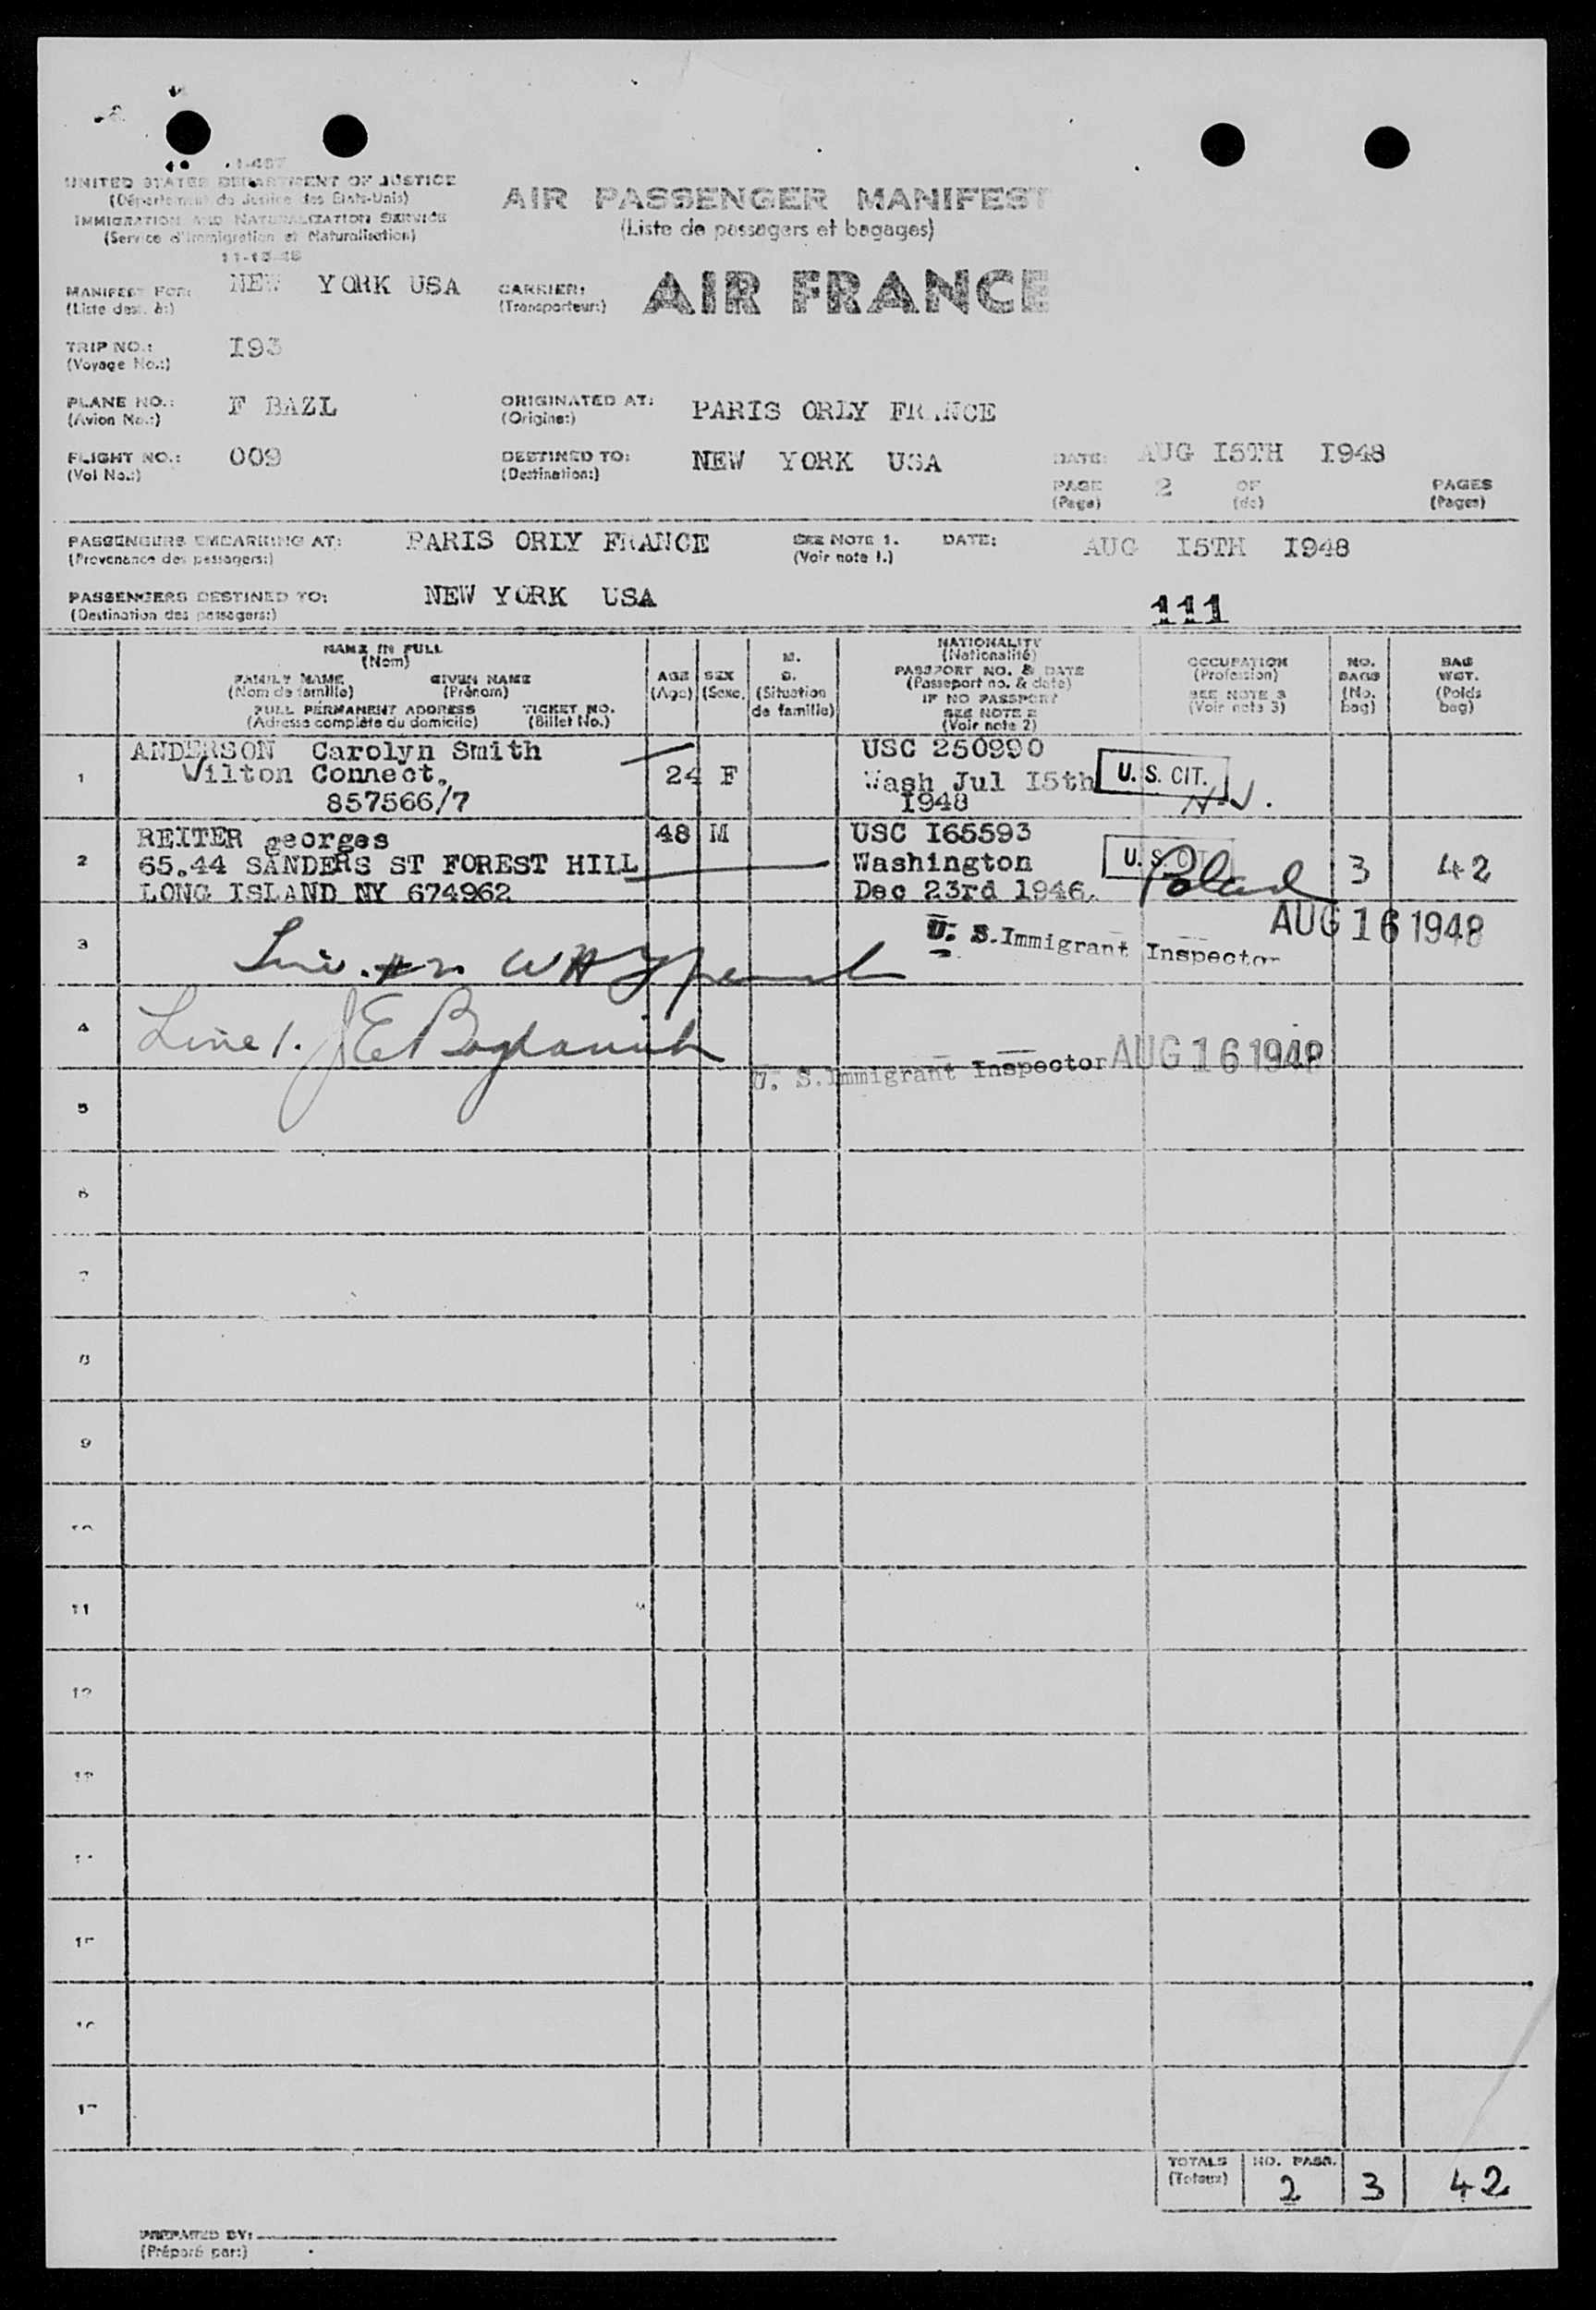 1-467
UNITED STATES DEPARTMENT OF JUSTICE
(Département de Justice des Etats-Unis)
IMMIGRATION AND NATURALIZATION SERVICE
(Service d'Immigration et Naturalisation)
AIR PASSENGER MANIFEST
(Liste de passagers et bagages)
MANIFEST FOR: NEW YORK USA
(Liste dest. à:)
CARRIER: AIR FRANCE
(Transporteur:)
TRIP NO.: I93
(Voyage No.:)
PLANE NO.: F BAZL
(Avion No.:)
ORIGINATED AT: PARIS ORLY FRANCE
(Origine:)
FLIGHT NO.: 009
(Vol No.:)
DESTINED TO: NEW YORK USA
(Destination:)
DATE: AUG I5TH I948
PAGE 2 OF PAGES
(Page) (de) (Pages)
PASSENGERS EMBARKING AT: PARIS ORLY FRANCE SEE NOTE 1. DATE: AUG I5TH I948
(Provenance des passagers:) (Voir note 1.)
PASSENGERS DESTINED TO: NEW YORK USA
(Destination des passagers:)
111
NAME IN FULL
(Nom)
FAMILY NAME GIVEN NAME
(Nom de famille) (Prénom)
FULL PERMANENT ADDRESS TICKET NO.
(Adresse complète du domicile) (Billet No.)
AGE
(Age)
SEX
(Sexe)
M.
S.
(Situation
de famille)
NATIONALITY
(Nationalité)
PASSPORT NO. & DATE
(Passeport no. & date)
IF NO PASSPORT
SEE NOTE 2
(Voir note 2)
OCCUPATION
(Profession)
SEE NOTE 3
(Voir note 3)
NO.
BAGS
(No.
bag)
BAG
WGT.
(Poids
bag)
1 ANDERSON Carolyn Smith 24 F USC 250990
Wilton Connect. Wash Jul I5th U. S. CIT.
857566/7 I948 N.J.
2 REITER georges 48 M USC I65593
65.44 SANDERS ST FOREST HILL Washington U. S. CIT. Poland 3 42
LONG ISLAND NY 674962 Dec 23rd 1946.
AUG 16 1948
3
U. S. Immigrant Inspector
4 Line 1.
U. S. Immigrant Inspector AUG 16 1948
5
6
7
8
9
10
11
12
13
14
15
16
17
TOTALS NO. PASS.
(Totaux) 2 3 42
PREPARED BY:
(Préparé par:)